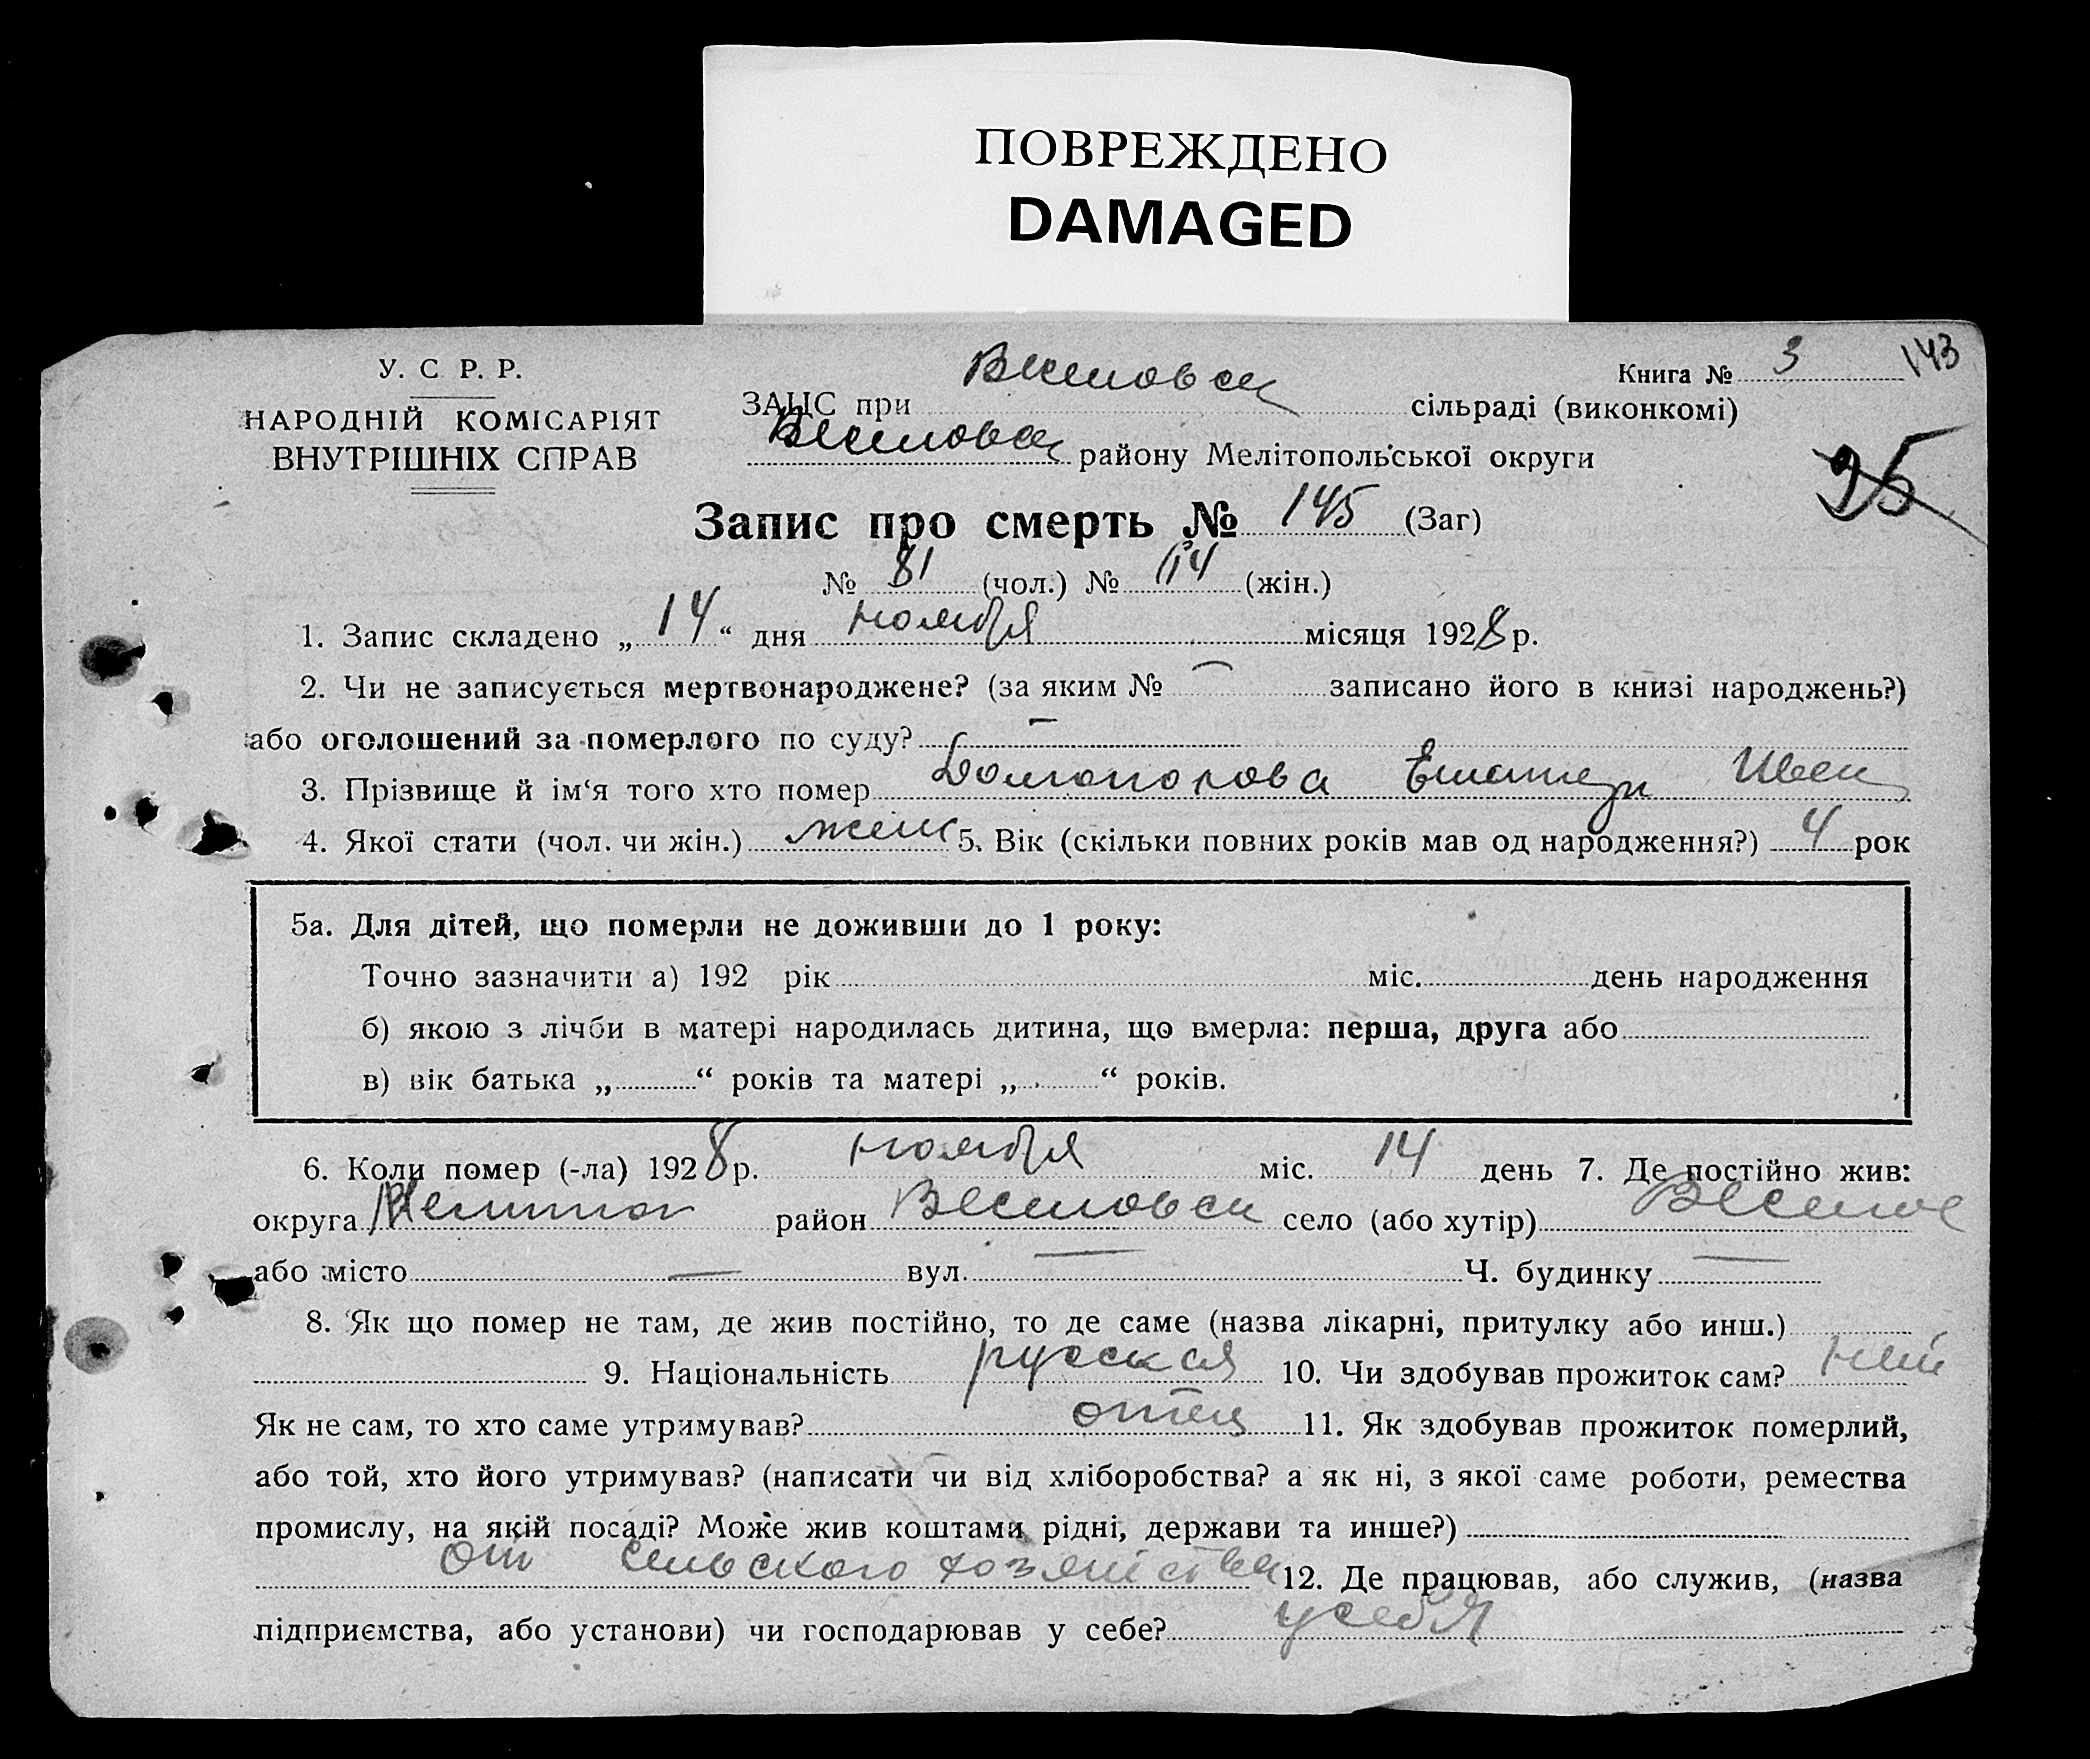 ПОВРЕЖДЕНО
DAMAGED
У. С. Р. Р.
НАРОДНІЙ КОМІСАРІЯТ
ВНУТРІШНІХ СПРАВ
Книга № 3 143
ЗАЦС при Веселовск сільраді (виконкомі)
Веселовск району Мелітопольської округи
95
Запис про смерть № 145 (Заг)
№ 81 (чол.) № (жін.)
1. Запис складено „ 14 “ дня ноября місяця 1928 р.
2. Чи не записується мертвонароджене? (за яким № — записано його в книзі народжень?)
або оголошений за померлого по суду? —
3. Прізвище й ім‘я того хто помер Долгополова
4. Якої стати (чол. чи жін.) женс 5. Вік (скільки повних років мав од народження?) 4 рок
5а. Для дітей, що померли не доживши до 1 року:
Точно зазначити а) 192 рік міс. день народження
б) якою з лічби в матері народилась дитина, що вмерла: перша, друга або
в) вік батька „ “ років та матері „ “ років.
6. Коли помер (-ла) 1928 р. ноября міс. 14 день 7. Де постійно жив:
округа Мелитоп район Веселовск село (або хутір) Веселое
або місто — вул. — Ч. будинку —
8. Як що помер не там, де жив постійно, то де саме (назва лікарні, притулку або инш.)
9. Національність русская 10. Чи здобував прожиток сам? нет
Як не сам, то хто саме утримував? отец 11. Як здобував прожиток померлий,
або той, хто його утримував? (написати чи від хліборобства? а як ні, з якої саме роботи, ремества
промислу, на якій посаді? Може жив коштами рідні, держави та инше?)
от сельского хозяйства 12. Де працював, або служив, (назва
підприємства, або установи) чи господарював у себе? у себя